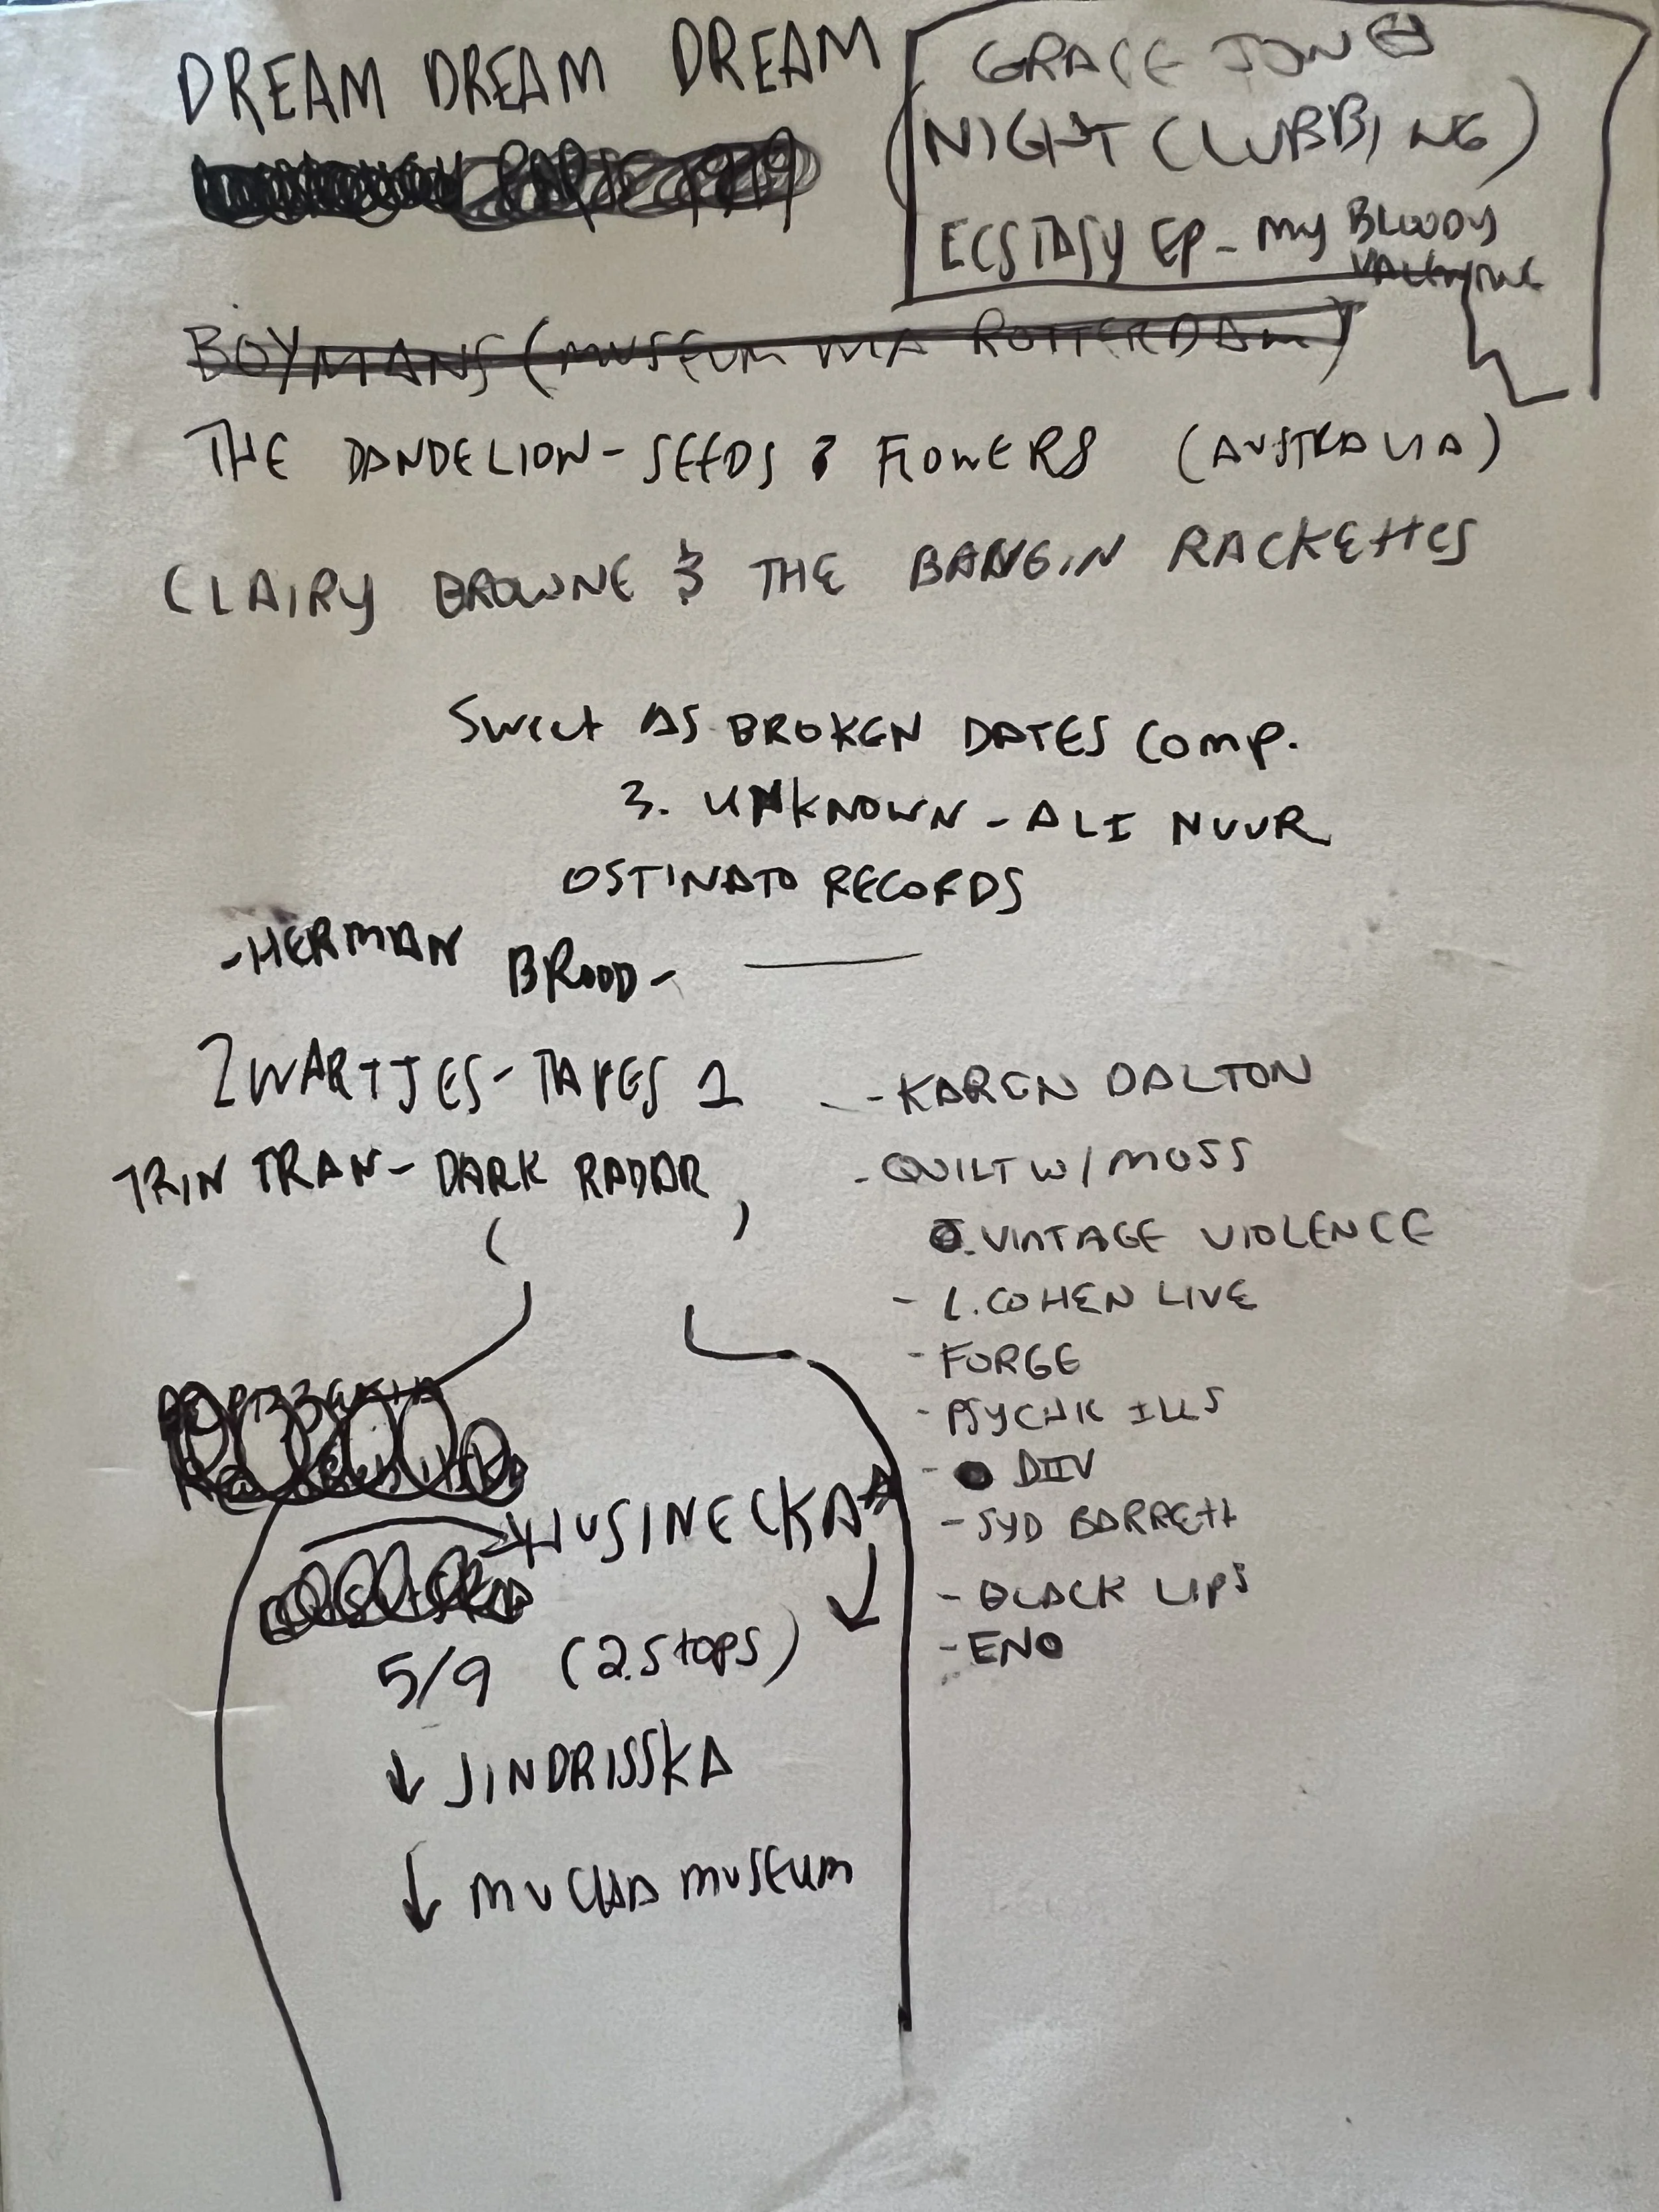 DREAM DREAM DREAM
GRACE JONES
(NIGHT CLUBBING)
ECSTASY EP - MY BLOODY
VALENTINE
BOYMANS (MUSEUM VIA ROTTERDAM)
THE DANDELION - SEEDS & FLOWERS (AUSTRALIA)
CLAIRY BROWNE & THE BANGIN RACKETTES
SWEET AS BROKEN DATES COMP.
3. UNKNOWN - ALI NUUR
OSTINATO RECORDS
- HERMAN BROOD -
ZWARTJES - TAPES 1
TRIN TRAN - DARK RADAR
- KAREN DALTON
- QUILT W/ MOSS
. VINTAGE VIOLENCE
- L. COHEN LIVE
- FORGE
- PSYCHIC ILLS
- DIIV
- SYD BARRETT
- BLACK LIPS
- ENO
HUSINECKA
5/9 (2 STOPS)
↓ JINDRISSKA
↓ MUCHA MUSEUM